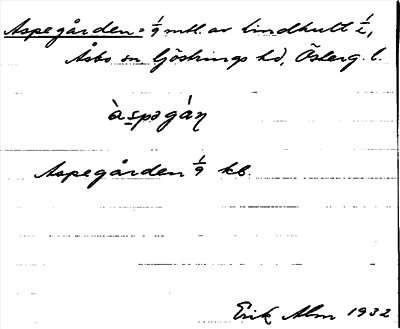 Aspegården = 1/9 mtl. av Lindhult 1/2,
Åsbo sn Göstrings hd, Österg. l.
àspəgàɳ
Aspegården 1/9 kb.
Erik Alm 1932